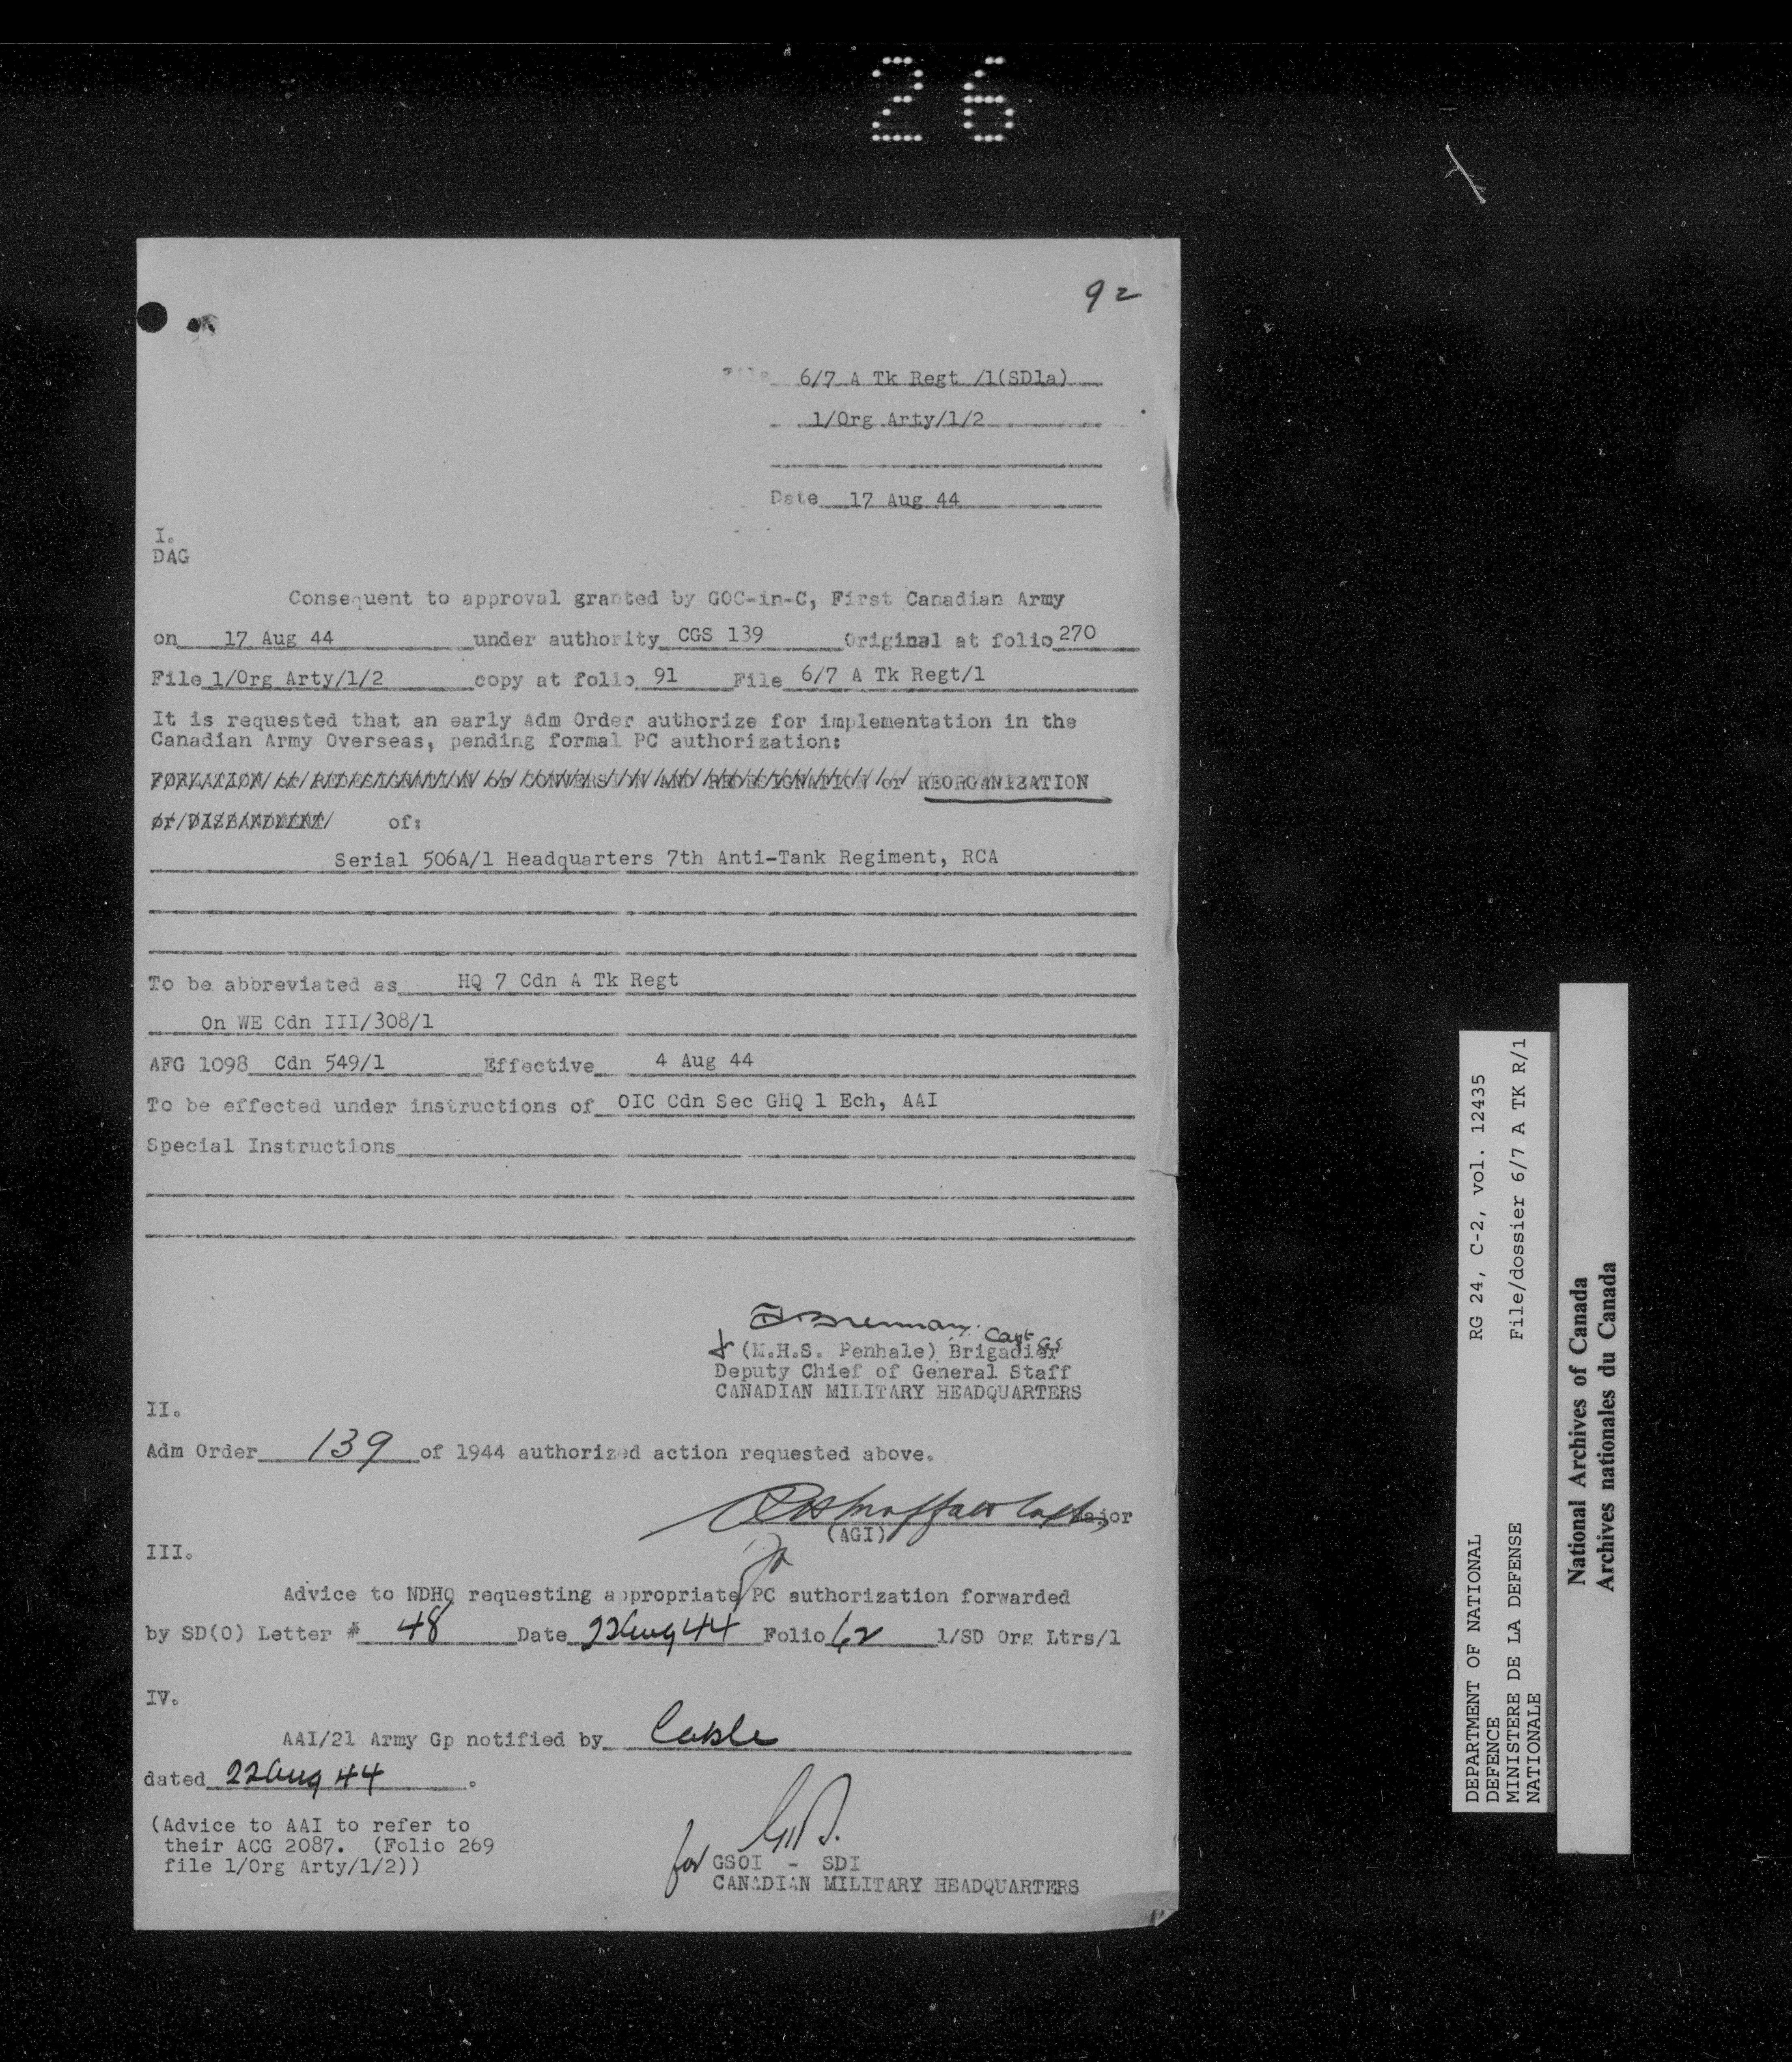 26
92
File 6/7 A Tk Regt /1(SD1a)
1/Org Arty/1/2
Date 17 Aug 44
I.
DAG
Consequent to approval granted by GOC-in-C, First Canadian Army
on 17 Aug 44 under authority CGS 139 Original at folio 270
File 1/Org Arty/1/2 copy at folio 91 File 6/7 A Tk Regt/1
It is requested that an early Adm Order authorize for implementation in the
Canadian Army Overseas, pending formal PC authorization:
FORMATION or REDESIGNATION or CONVERSION AND REDESIGNATION or REORGANIZATION
or DISBANDMENT of:
Serial 506A/1 Headquarters 7th Anti-Tank Regiment, RCA
To be abbreviated as HQ 7 Cdn A Tk Regt
On WE Cdn III/308/1
AFG 1098 Cdn 549/1 Effective 4 Aug 44
To be effected under instructions of OIC Cdn Sec GHQ 1 Ech, AAI
Special Instructions
Brennan Capt GS
(M.H.S. Penhale) Brigadier
Deputy Chief of General Staff
CANADIAN MILITARY HEADQUARTERS
II.
Adm Order 139 of 1944 authorized action requested above.
Major
(AGI)
III.
Advice to NDHQ requesting appropriate PC authorization forwarded
by SD(O) Letter # 48 Date 22 Aug 44 Folio 62 1/SD Org Ltrs/1
IV.
AAI/21 Army Gp notified by Cable
dated 22 Aug 44.
(Advice to AAI to refer to
their ACG 2087. (Folio 269
file 1/Org Arty/1/2))
for GSOI - SDI
CANADIAN MILITARY HEADQUARTERS
DEPARTMENT OF NATIONAL RG 24, C-2, vol. 12435
DEFENCE
MINISTERE DE LA DEFENSE File/dossier 6/7 A TK R/1
NATIONALE
National Archives of Canada
Archives nationales du Canada